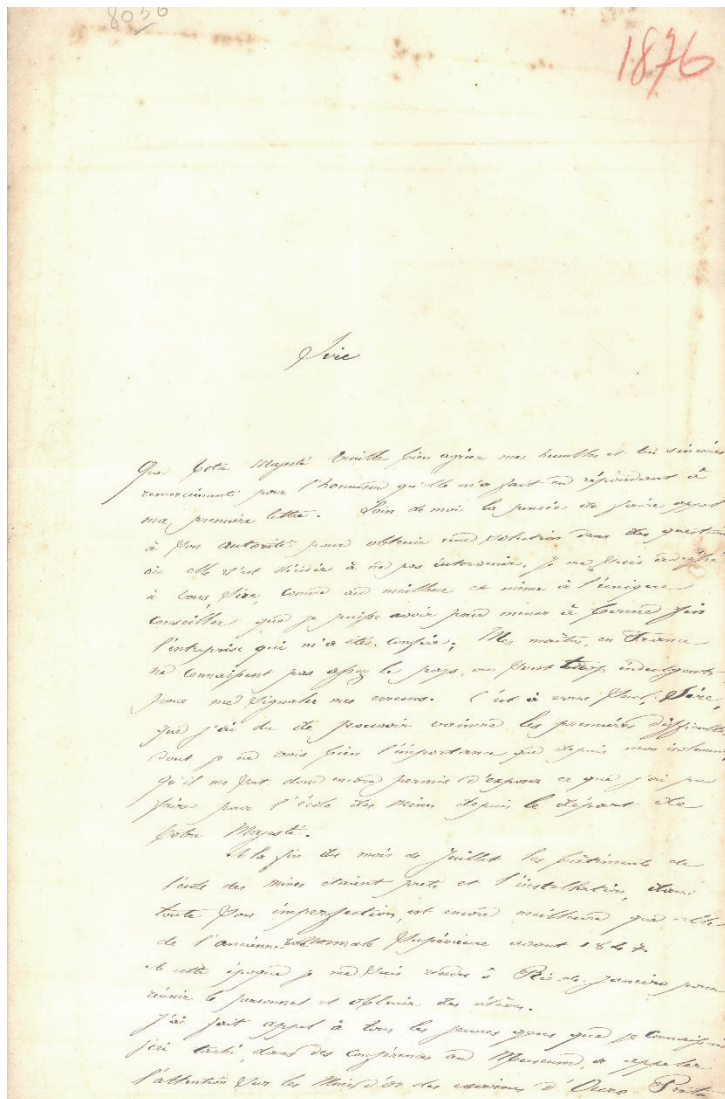 8056
1876
Sire
Que Votre Majesté veuille bien agréer mes humbles et très sincères
remerciements pour l'honneur qu'elle m'a fait en répondant à
ma première lettre. Loin de moi la pensée de faire appel
à son autorité pour obtenir une solution dans des questions
où elle s'est décidée à ne pas intervenir. Je me suis adressé
à vous, Sire, comme au meilleur et même à l'unique
conseiller que je puisse avoir pour mener à bonne fin
l'entreprise qui m'a été confiée; Mes maîtres en France
ne connaissent pas assez le pays, ou sont trop indulgents
pour me signaler mes erreurs. C'est à vous seul, Sire,
que j'ai du de pouvoir vaincre les premières difficultés
dont je ne vois bien l'importance que depuis mon isolement,
qu'il me soit donc encore permis d'exposer ce que j'ai pu
faire pour l'école des mines depuis le départ de
Votre Majesté.
A la fin du mois de Juillet les bâtiments de
l'école des mines étaient prêts et l'installation, dans
toute son imperfection, est encore meilleure que celle
de l'ancienne école normale supérieure avant 1847.
A cette époque je me suis rendu à Rio de Janeiro pour
réunir le personnel et obtenir des élèves.
J'ai fait appel à tous les jeunes gens que je connaissais
j'ai taché, dans des conférences au Museum, d'appeler
l'attention sur les mines d'or des environs d'Ouro-Preto